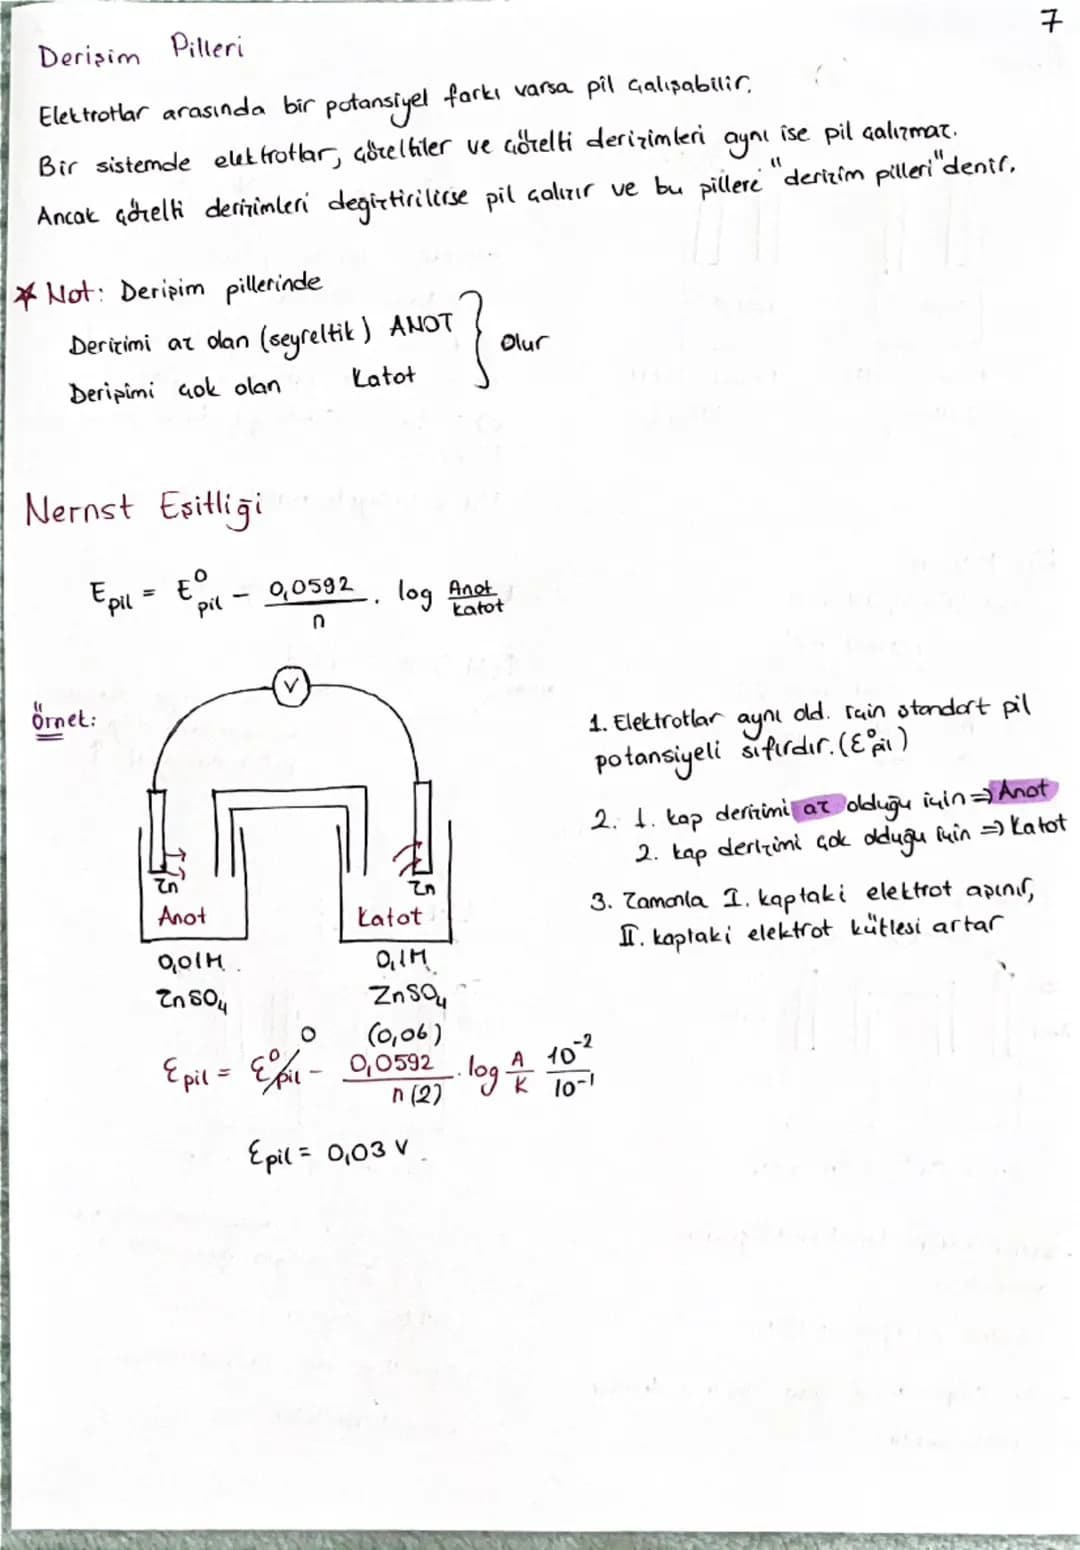 7
Derişim Pilleri
Elektrotlar arasında bir potansiyel farkı varsa pil çalışabilir.
Bir sistemde elektrotlar, çözeltiler ve çözelti derişimleri aynı ise pil çalışmaz.
Ancak çözelti derişimleri değiştirilirse pil çalışır ve bu pillere "derişim pilleri" denir.
* Not: Derişim pillerinde
Derişimi az olan (seyreltik) ANOT
Derişimi çok olan Katot
} Olur
Nernst Eşitliği
Epil = E⁰pil - 0,0592/n . log Anot/Katot
Örnek:
V
Zn
Anot
0,01M
ZnSO₄
Zn
Katot
0,1M
ZnSO₄
1. Elektrotlar aynı old. için standart pil
potansiyeli sıfırdır. (E⁰pil)
2. 1. kap derişimi az olduğu için ⇒ Anot
2. kap derişimi çok olduğu için ⇒ Katot
3. Zamanla I. kaptaki elektrot aşınır,
II. kaptaki elektrot kütlesi artar
0 (0,06)
Epil = E⁰pil - 0,0592/n(2) . log A/K 10⁻²/10⁻¹
Epil = 0,03 V